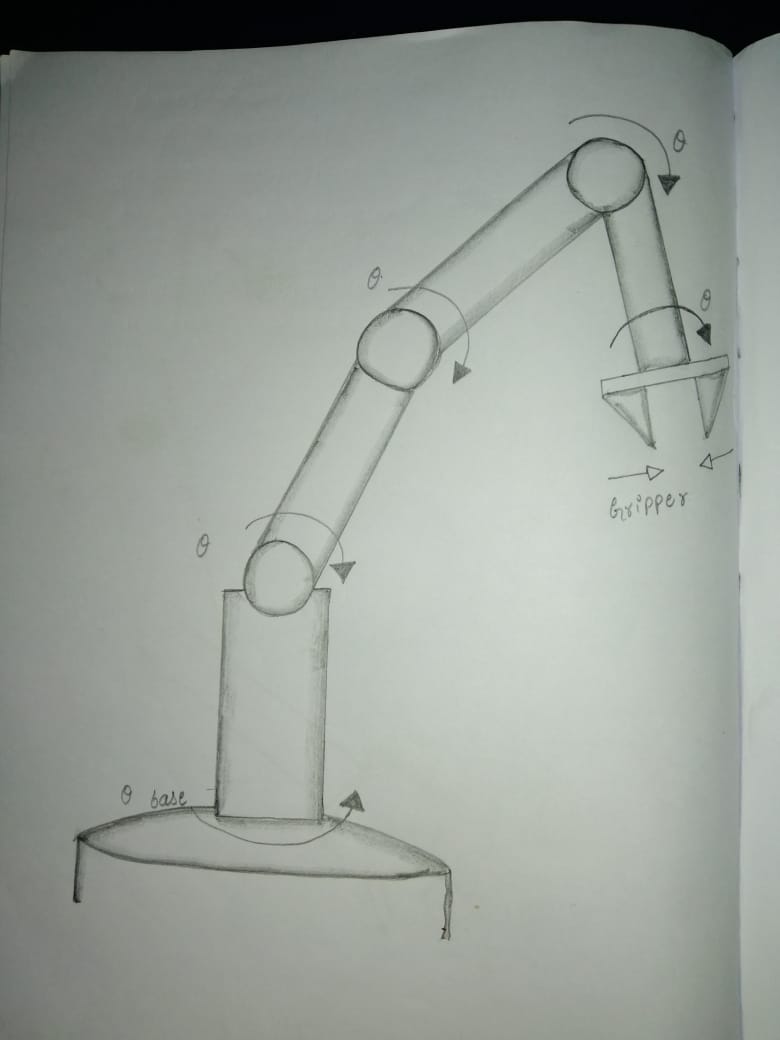 θ
θ
θ
Gripper
θ
θ base